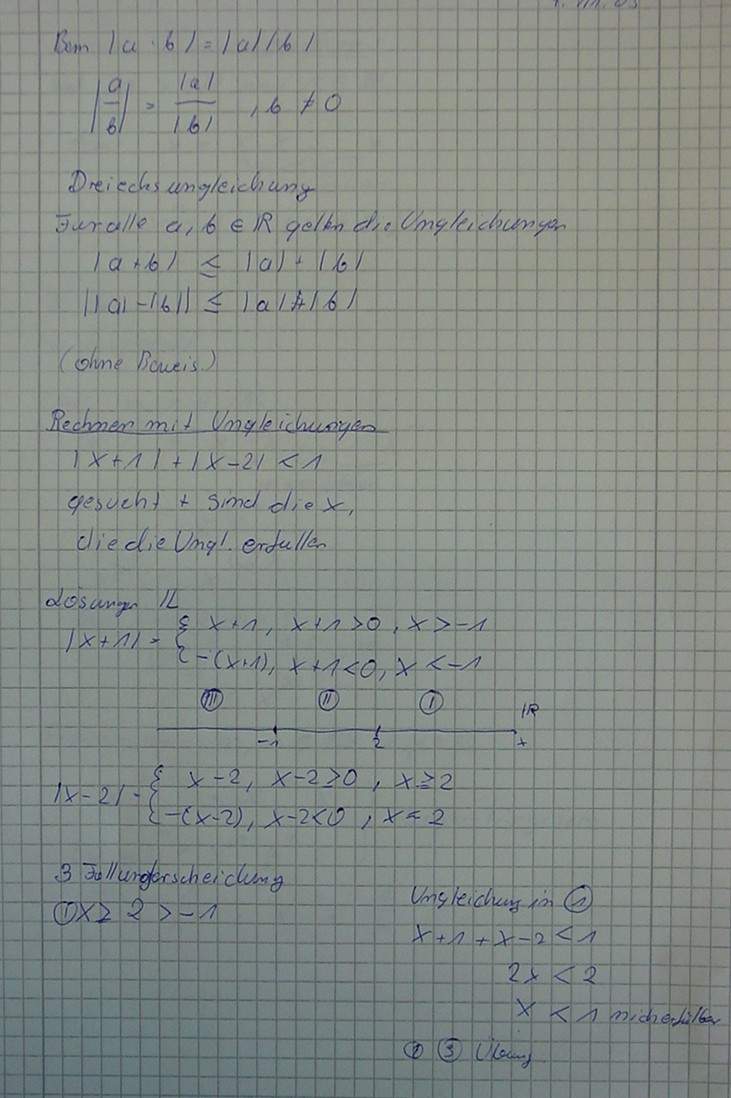 Bem |a · b| = |a| |b|
|a/b| = |a|/|b| , b ≠ 0
Dreiecksungleichung
Für alle a, b ∈ ℝ gelten die Ungleichungen
|a+b| ≤ |a| + |b|
||a| - |b|| ≤ |a| + |b|
(ohne Beweis.)
Rechnen mit Ungleichungen
|x+1| + |x-2| < 1
gesucht + sind die x,
die die Ungl. erfüllen
Lösungen IL
|x+1| = { x+1, x+1>0, x>-1
{ -(x+1), x+1<0, x<-1
III II I ℝ
-1 2 x
|x-2| = { x-2, x-2≥0, x≥2
{ -(x-2), x-2<0, x<2
3 Fallunterscheidung
① x ≥ 2 > -1
Ungleichung in ①
x+1+x-2 < 1
2x < 2
x < 1
③ Übung